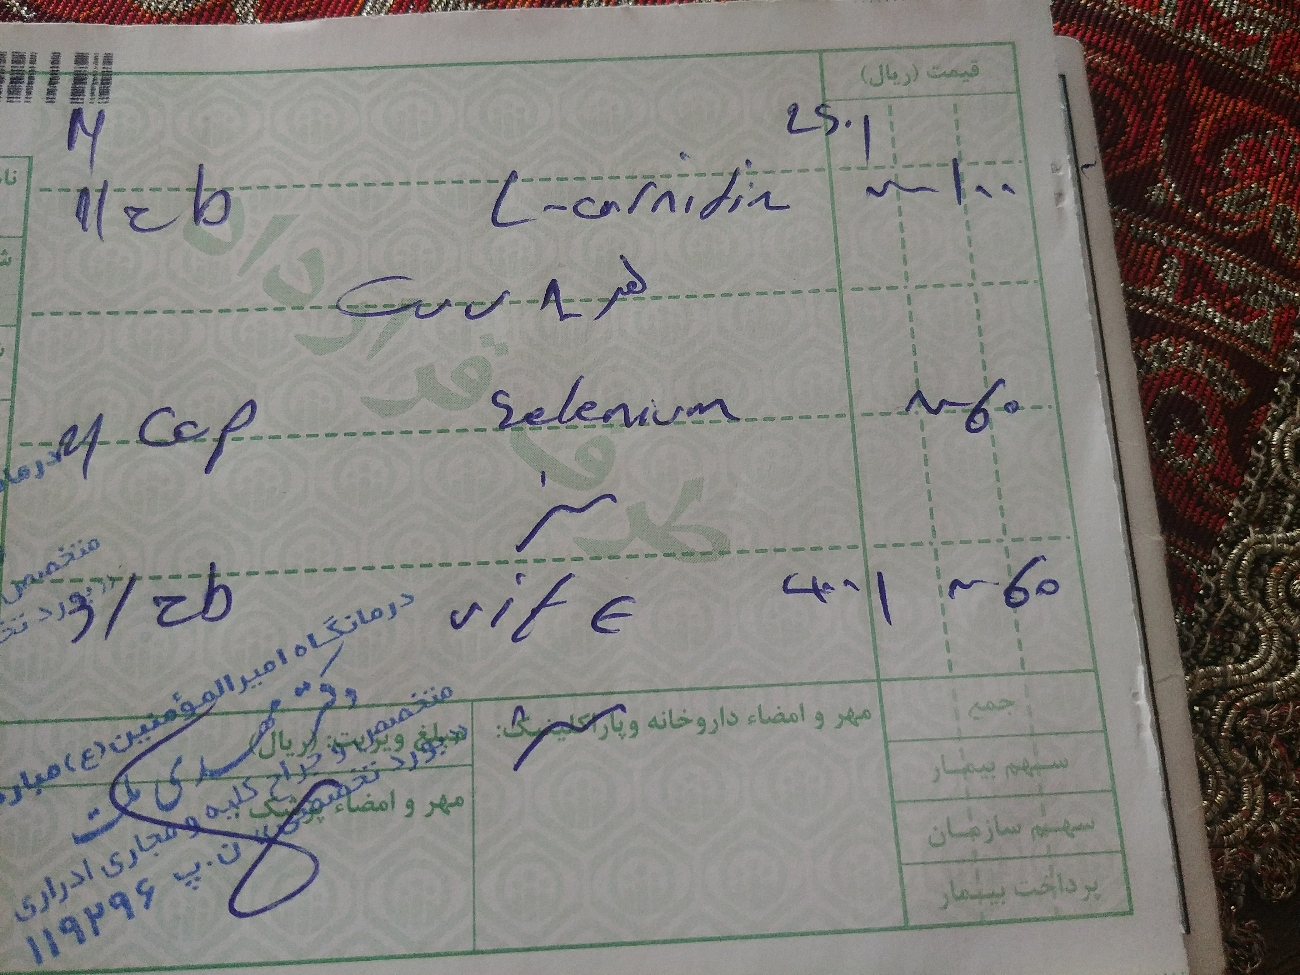 قیمت (ریال)
250
1/ Tab L-carnitin N-100
هر 8 ساعت
2/ Cap Selenium N-60
3/ Tab vit E 400 N-60
درمانگاه امیرالمؤمنین (ع)
متخصص و جراح کلیه و مجاری ادراری
ن.پ ۱۱۹۲۹۶
مبلغ ویزیت: (ریال)
مهر و امضاء پزشک
مهر و امضاء داروخانه و پاراکلینیک:
جمع
سهم بیمار
سهم سازمان
پرداخت بیمار